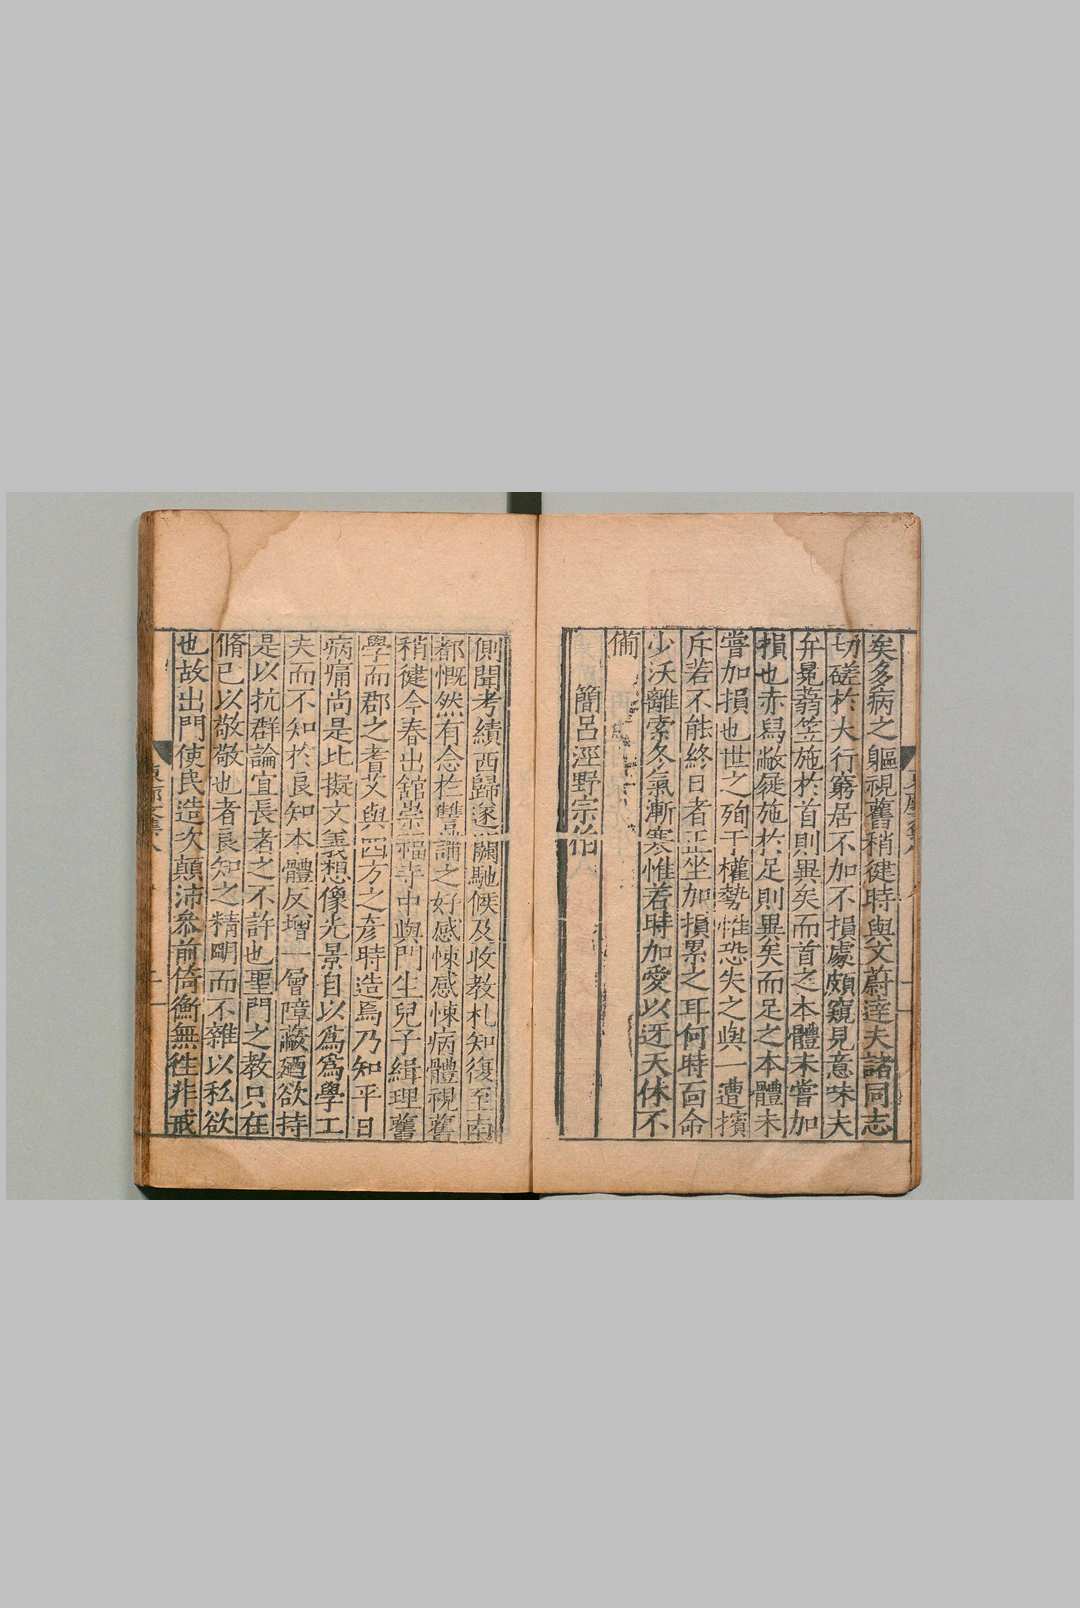 矣多病之軀視舊稍徤時與文蔚達夫諸同志
切磋扵大行窮居不加不損處頗窺見意味夫
弁冕蒻笠施扵首則異矣而首之本體未嘗加
損也赤舄敝屣施扵足則異矣而足之本體未
嘗加損也世之殉于權勢惟恐失之與一遭擯
斥若不能終日者正坐加損累之耳何時靣命
少沃離索冬氣漸寒惟若時加愛以迓天休不
備
簡呂涇野宗伯
側聞考績西歸遂闊馳候及收教札知復至南
都慨然有念扵讐誦之好感悚感悚病體視舊
稍健今春出舘崇福寺中與門生兒子緝理舊
學而郡之耆艾與四方之彥時造焉乃知平日
病痛尚是比擬文義想像光景自以爲爲學工
夫而不知扵良知本體反增一層障蔽廼欲持
是以抗群論宜長者之不許也聖門之教只在
脩已以敬敬也者良知之精明而不雜以私欲
也故出門使民造次顛沛叅前倚衡無徃非戒